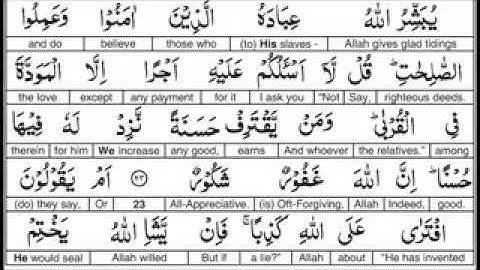 يُبَشِّرُ اللهُ عِبَادَهُ الَّذِيْنَ اٰمَنُوْا وَعَمِلُوا
and do believe those who (to) His slaves - Allah gives glad tidings
الصّٰلِحٰتِ ؕ قُلْ لَّاۤ اَسْئَلُكُمْ عَلَيْهِ اَجْرًا اِلَّا الْمَوَدَّةَ
the love except any payment for it I ask you "Not Say, righteous deeds.
فِي الْقُرْبٰى ؕ وَمَنْ يَّقْتَرِفْ حَسَنَةً نَّزِدْ لَهٗ فِيْهَا
therein for him We increase any good, earns And whoever the relatives." among
حُسْنًا ؕ اِنَّ اللهَ غَفُوْرٌ شَكُوْرٌ ﴿۲۳﴾ اَمْ يَقُوْلُوْنَ
(do) they say, Or 23 All-Appreciative. (is) Oft-Forgiving, Allah Indeed, good.
افْتَرٰى عَلَى اللهِ كَذِبًا ۚ فَاِنْ يَّشَاِ اللهُ يَخْتِمْ
He would seal Allah willed But if a lie?" Allah about "He has invented